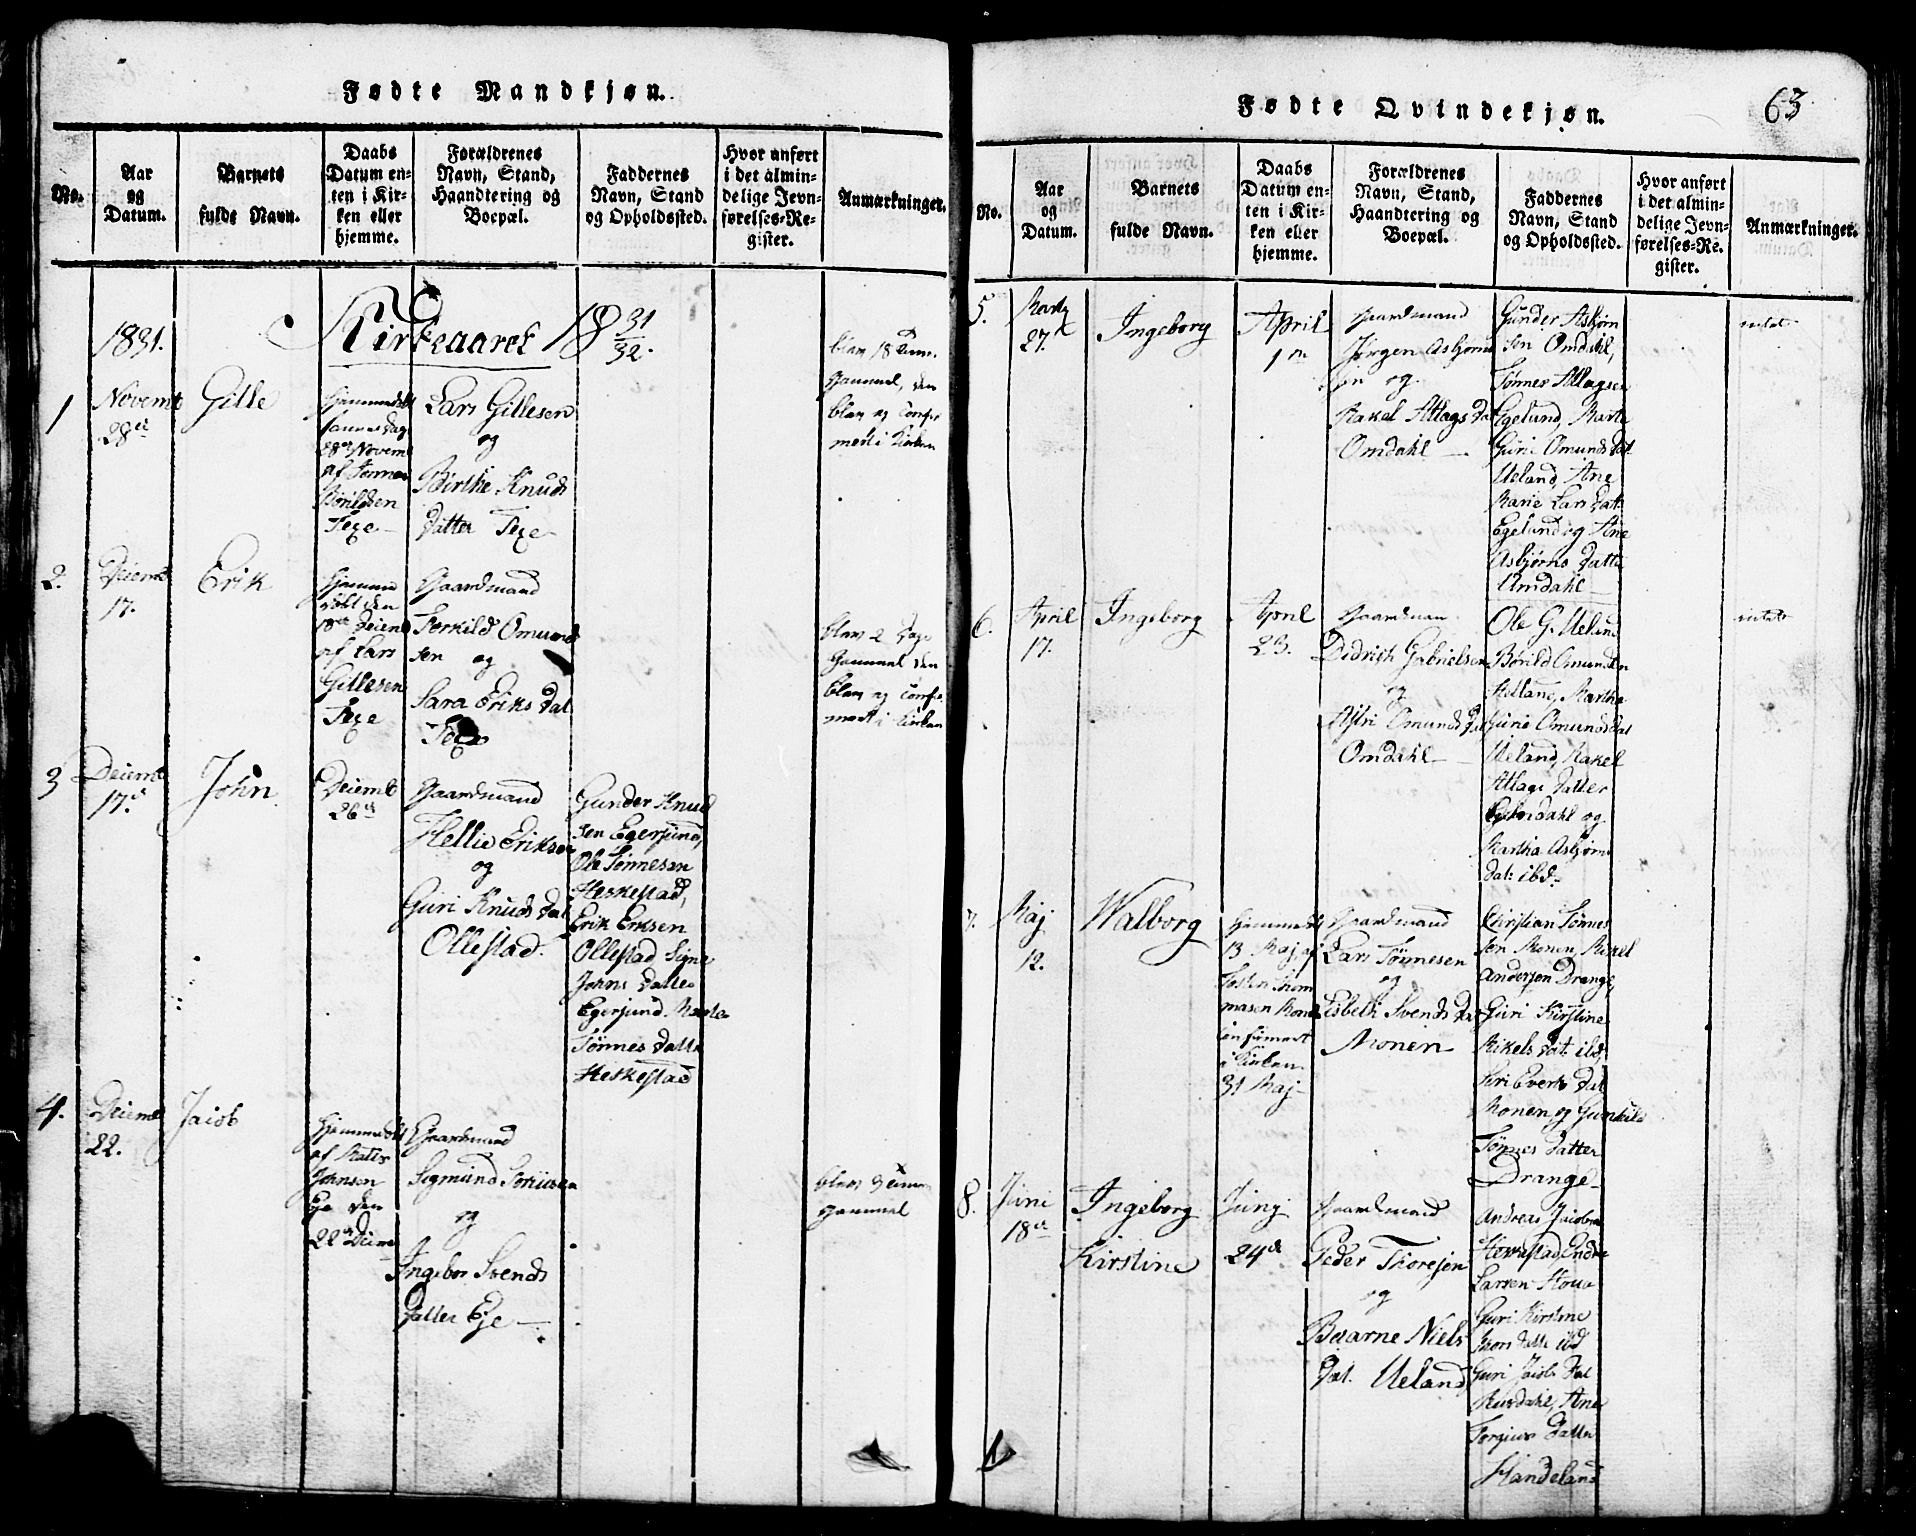 Fødte Mandkjøn.
No.
Aar
og
Datum.
Barnets
fulde Navn.
Daabs
Datum en-
ten i Kir-
ken eller
hjemme.
Forældrenes
Navn, Stand,
Haandtering og
Boepæl.
Faddernes
Navn, Stand
og Opholdssted.
Hvor anført
i det almin-
delige Jevn-
førelses-Re-
gister.
Anmærkninger.
1831.
Kirkeaaret 18 31/32.
1
Novemb
28de
Gille
28de Novemb
af
Texe
Lars Gillesen
og
Birthe Knuds
datter Texe
blev 18
Gammel, den
blev og
med i Kirken
2.
Deiemb
17.
Erik
Hjemme
døbt den
18de Deiemb
af Lars
Gillesen
Texe
Gaardmand
Torkild Omund
sen og
Sara Eriks Dat
Texe
blev 2 Dage
Gammel den
blev og
i Kirken
3
Deiemb
17de
John
Deiemb
26de
Gaardmand
Hellie Eriksen
og
Guri Knuds Dat
Ollestad.
Gunder Knud
sen Egersund,
Ole Tønnesen
Heskestad,
Erik Eriksen
Ollestad Signe
Johns Datter
Egersund. Marte
Tønnes Datte
Heskestad
4.
Deiemb
22.
Jacob
Hjemmedøbt
af
Johnsen
Eje den
22de Deiem
Gaardmand
Sigmund
og
Ingebor Svends
Datter Eje
blev
Gammel
Fødte Qvindekjøn.
63
No.
Aar
og
Datum.
Barnets
fulde Navn.
Daabs
Datum en-
ten i Kir-
ken eller
hjemme.
Forældrenes
Navn, Stand,
Haandtering og
Boepæl.
Faddernes
Navn, Stand
og Opholdssted.
Hvor anført
i det almin-
delige Jevn-
førelses-Re-
gister.
Anmærkninger.
5.
Marts
27de
Ingeborg
April
1ste
Gaardmand
Jørgen Asbjørn
sen og
Rakel Atlags Dat
Omdahl
Gunder Asbjørn
sen Omdahl,
Tønnes Atlagsen
Egelund, Marte
Guri Omunds Dat
Ueland, Ane
Marie Lars Dat
Egelund og Ane
Asbjørns Datte
Omdahl
6.
April
17.
Ingeborg
April
23.
Gaardman
Didrich Gabrielsen
og
Astri Omunds Dat
Omdahl
Ole G. Ueland
Børild Omundsen
Helland, Marthe
Gurie Omunds Dat
Ueland, Rakel
Atlags Datter
og
Martha Asbjørns
Dat: ibd.
7.
Maj
12.
Walborg
Hjemmedøbt
13 Maj af
i Kirken
31 Maj
Gaardmand
Lars Tønnesen
og
Lisbeth Svends Dat
Monen
Christian Tønnes
sen Monen, Mikel
Andersen Drange,
Guri Kirstine
Mikels Dat: ibd,
Siri Everts Dat
Monen og Gunhild
Tønnes Datter
Drange
8.
Juni
18de
Ingeborg
Kirstine
Junij
24de
Gaardmand
Peder Thoresen
og
Baarne Niels
Dat. Ueland
Andreas Jacobsen
Heskestad, Endre
Larsen
Guri Kirstine
Datte ibd
Guri Jacobs Dat
Ane
Datte
Handeland